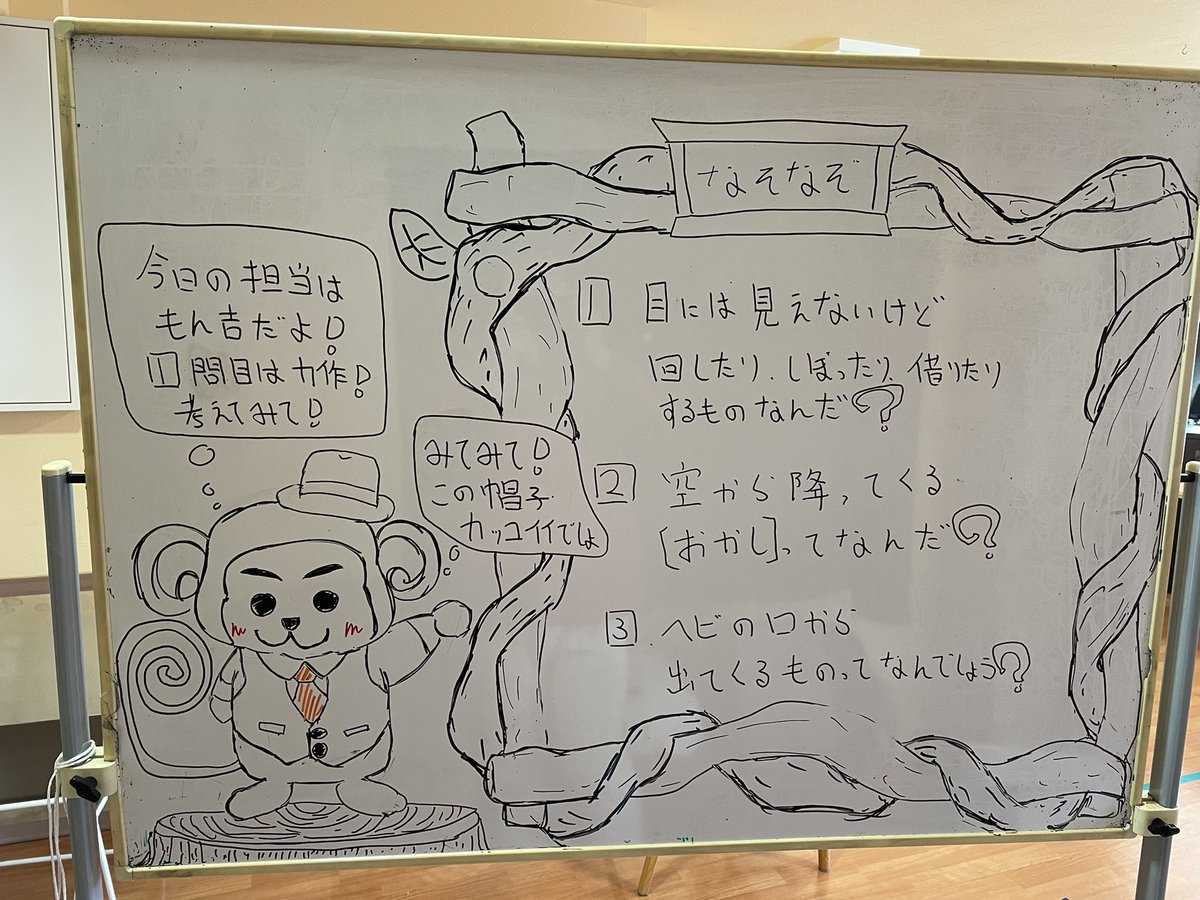 なぞなぞ
今日の担当は
もん吉だよ!
1問目は力作!
考えてみて!
みてみて!
この帽子
カッコイイでしょ
1 目には見えないけど
回したり、しぼったり、借りたり
するものなんだ?
2 空から降ってくる
[おかし]ってなんだ?
3 ヘビの口から
出てくるものってなんでしょう?